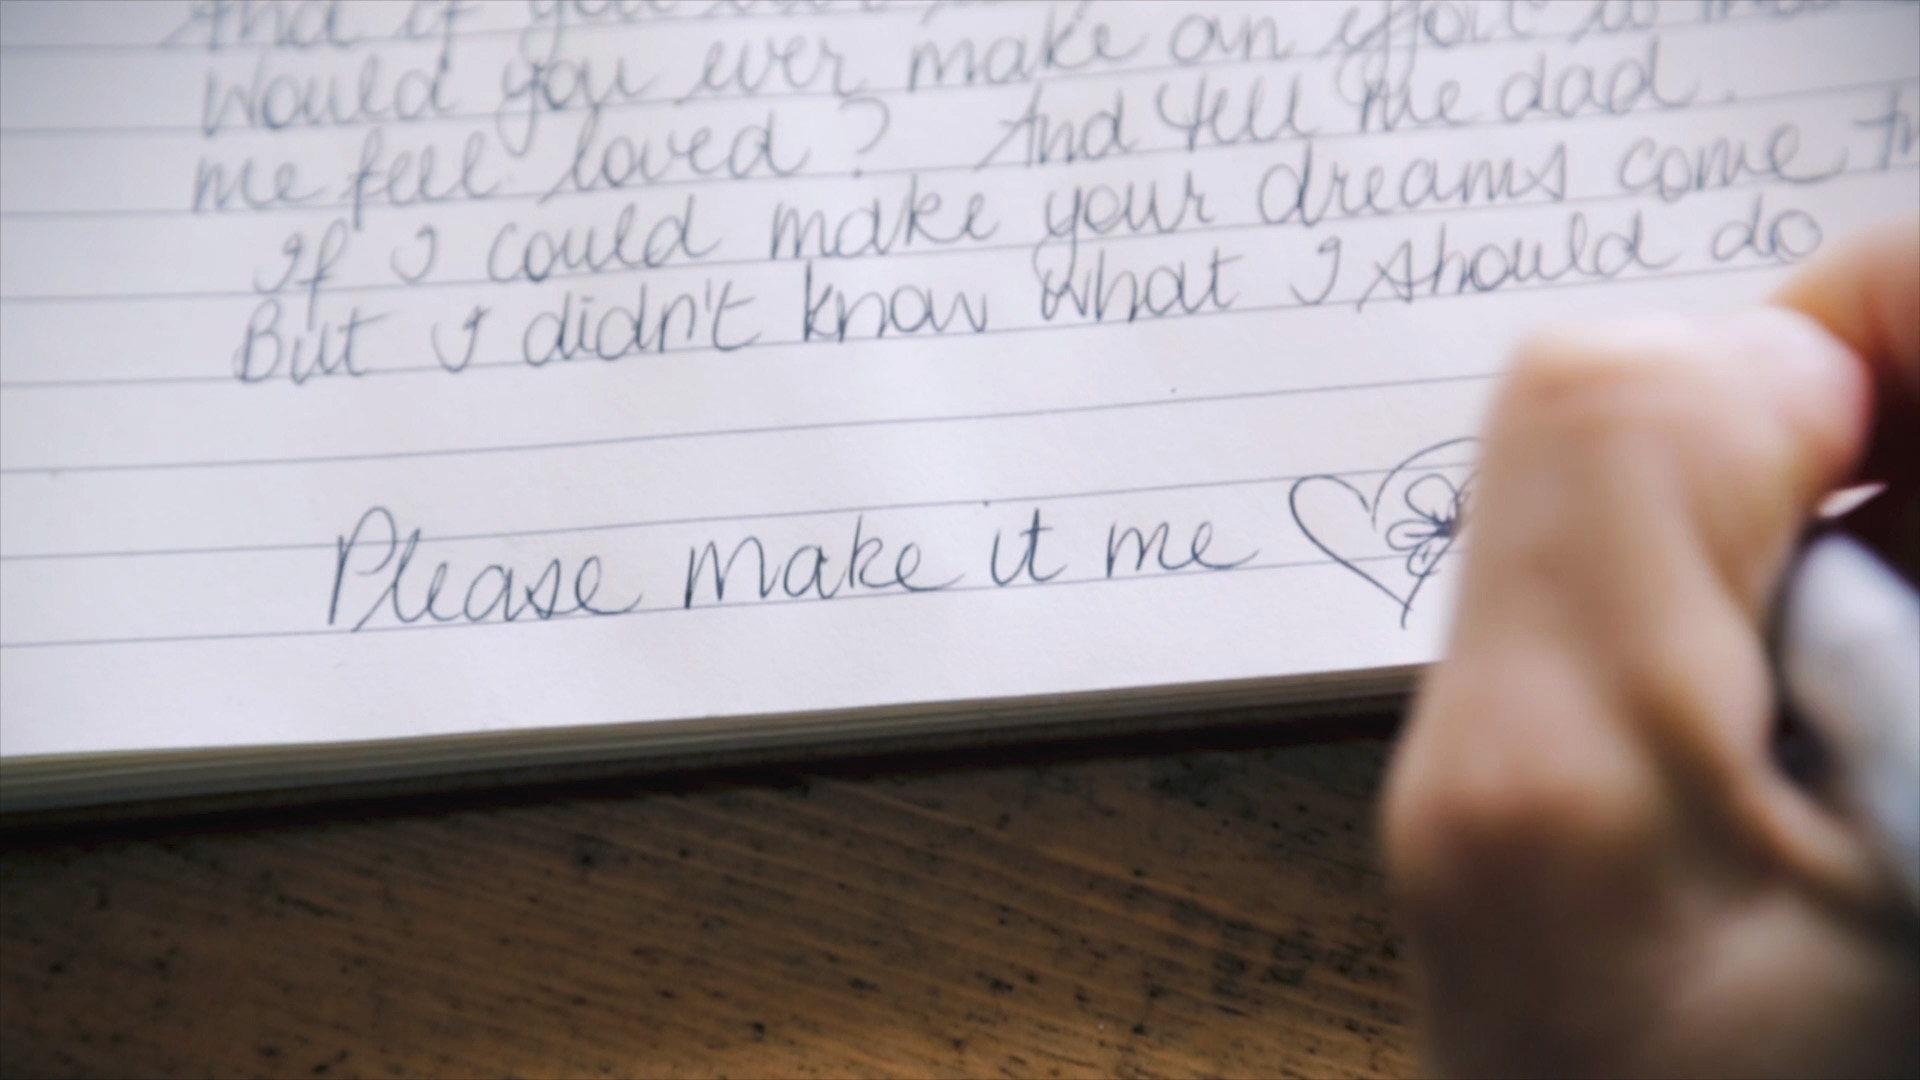 And if you
Would you ever make an effort to
me feel loved? And tell me dad.
If I could make your dreams come
But I didn't know what I should do
Please make it me